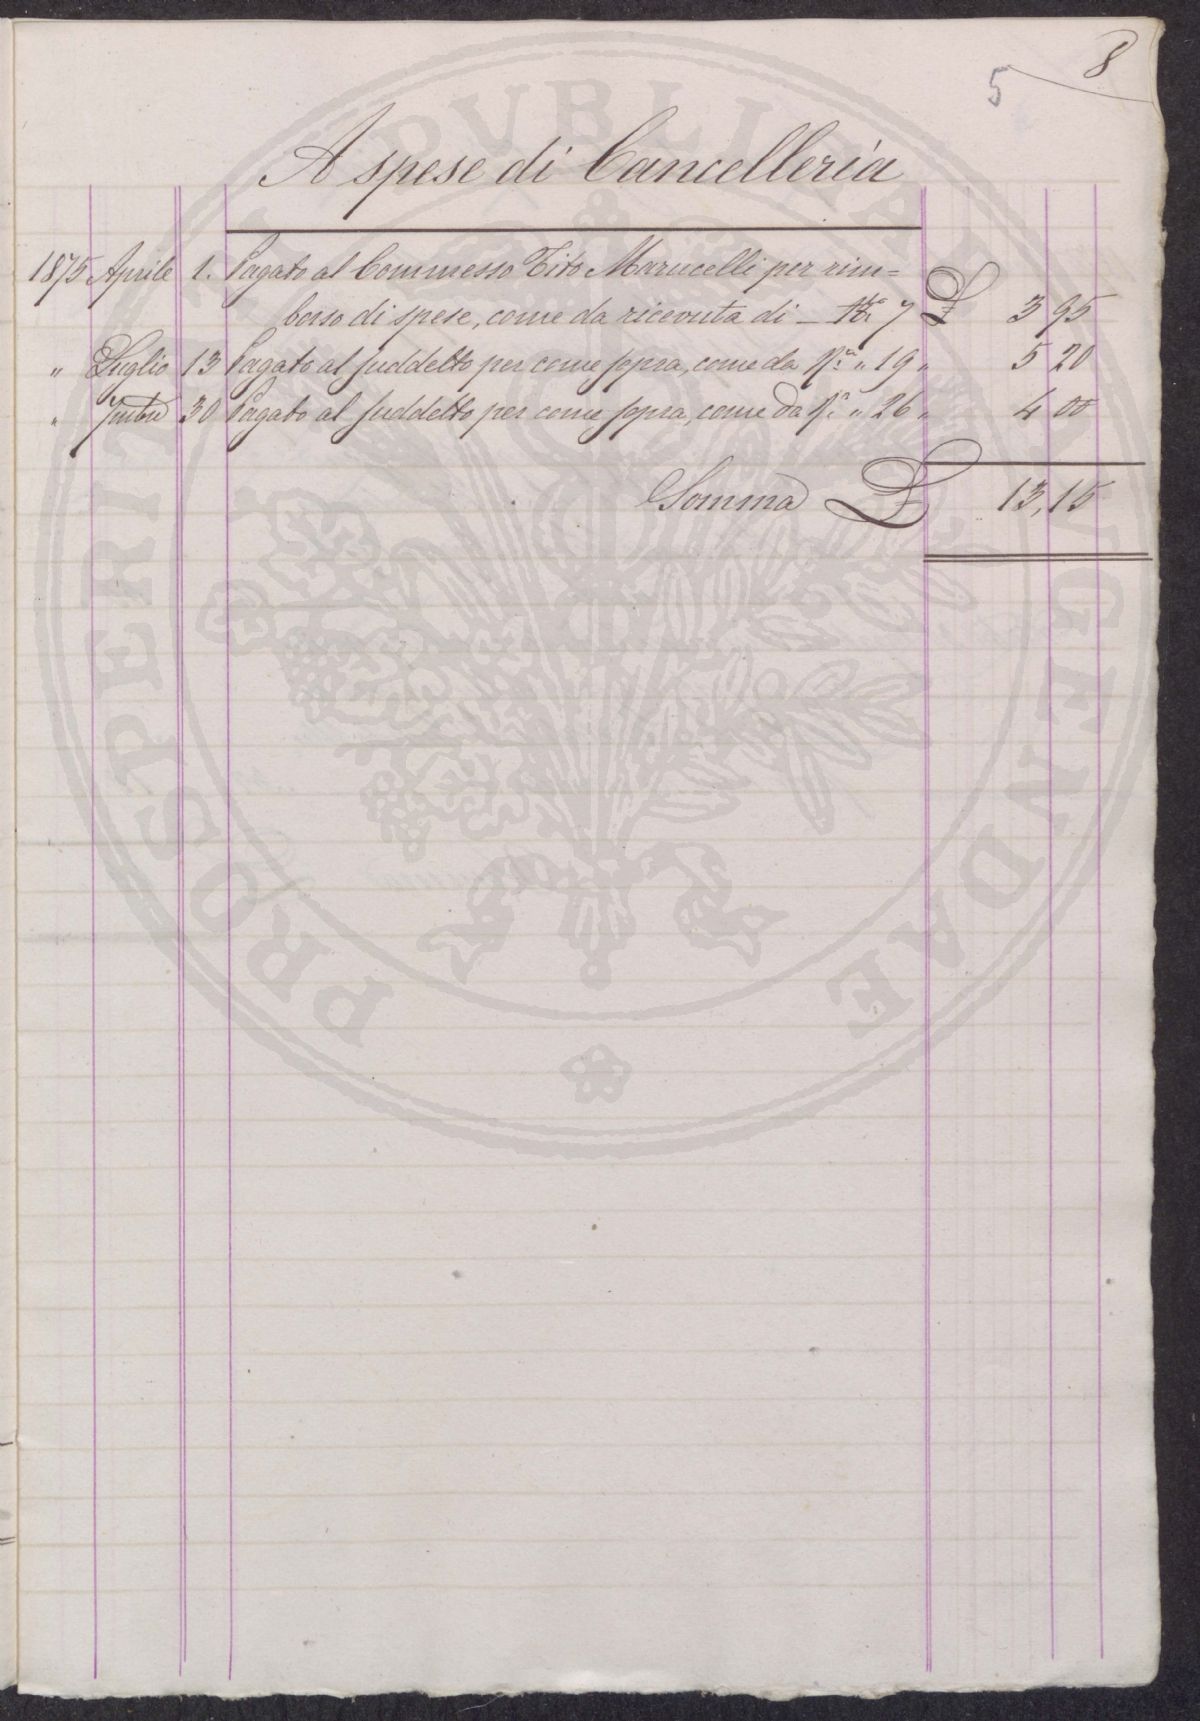 8
5
A spese di Cancelleria
1875 Aprile 1. Pagato al Commesso Tito Marucelli per rim=
borso di spese, come da ricevuta di — N.o 7 £ 3 95
" Luglio 13 Pagato al suddetto per come sopra, come da R.a " 19 " 5 20
" 30 Pagato al suddetto per come sopra, come da R.a " 26 " 4 00
Somma £ 13,15
PROSPERITATI PVBLICAE AVGENDAE